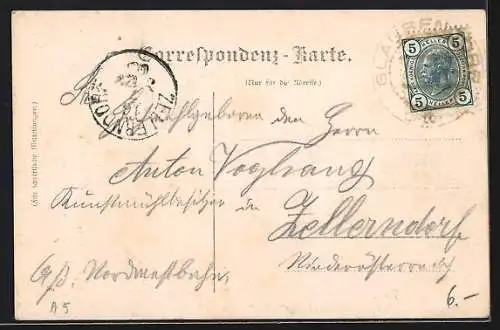 Correspondenz-Karte.
(Nur für die Adresse.)
(Für schriftliche Mittheilungen.)
5 HELLER 5
5 5
ZELLERNDORF
Wohlgeboren den Herrn
Anton Voglsang
Kunstmühlbesitzer in
Zellerndorf
Niederösterreich
a/d. Nordwestbahn,
A5
6.-